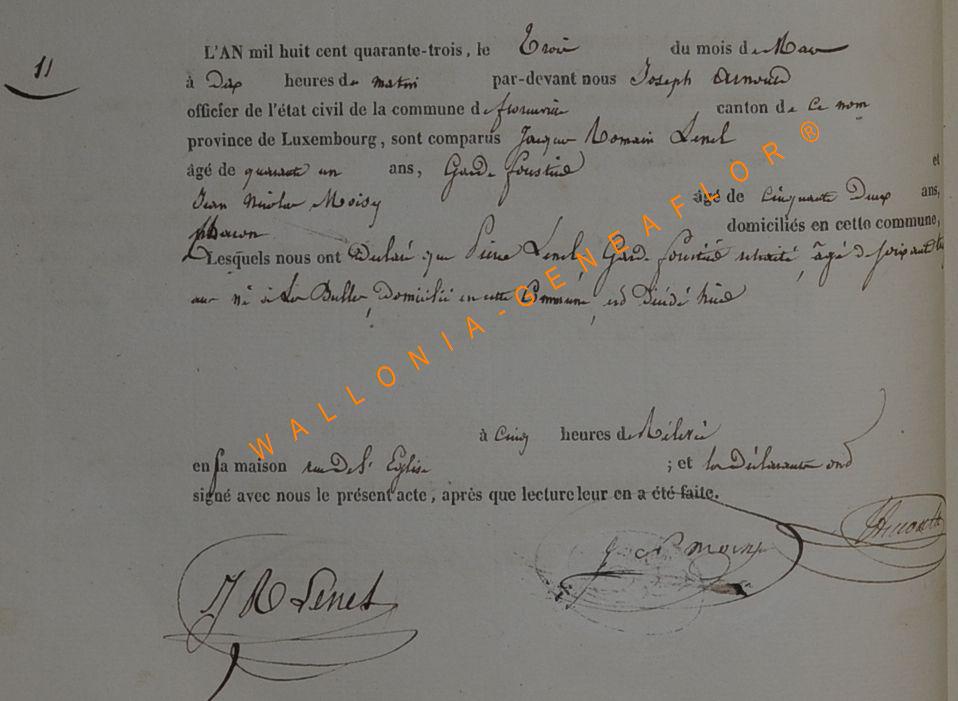 11
L'AN mil huit cent quarante-trois, le Trois du mois de Mars
à Dix heures du matin par-devant nous Joseph Arnould
officier de l'état civil de la commune de florenville canton de ce nom
province de Luxembourg, sont comparus Jacques Romain Lenel
âgé de quarante un ans, Garde forestier et
Jean Nicolas Moisy âgé de cinquante Deux ans,
domiciliés en cette commune,
Lesquels nous ont Déclaré que Pierre Lenel, Garde forestier retraité, âgé de soixante
ans né à Domicilié en cette Commune, est Décédé hier
à cinq heures de Rélevée
en sa maison rue De l' Eglise ; et les Déclarants ont
signé avec nous le présent acte, après que lecture leur en a été faite.
J R Lenel
WALLONIA-GENEAFLOR®